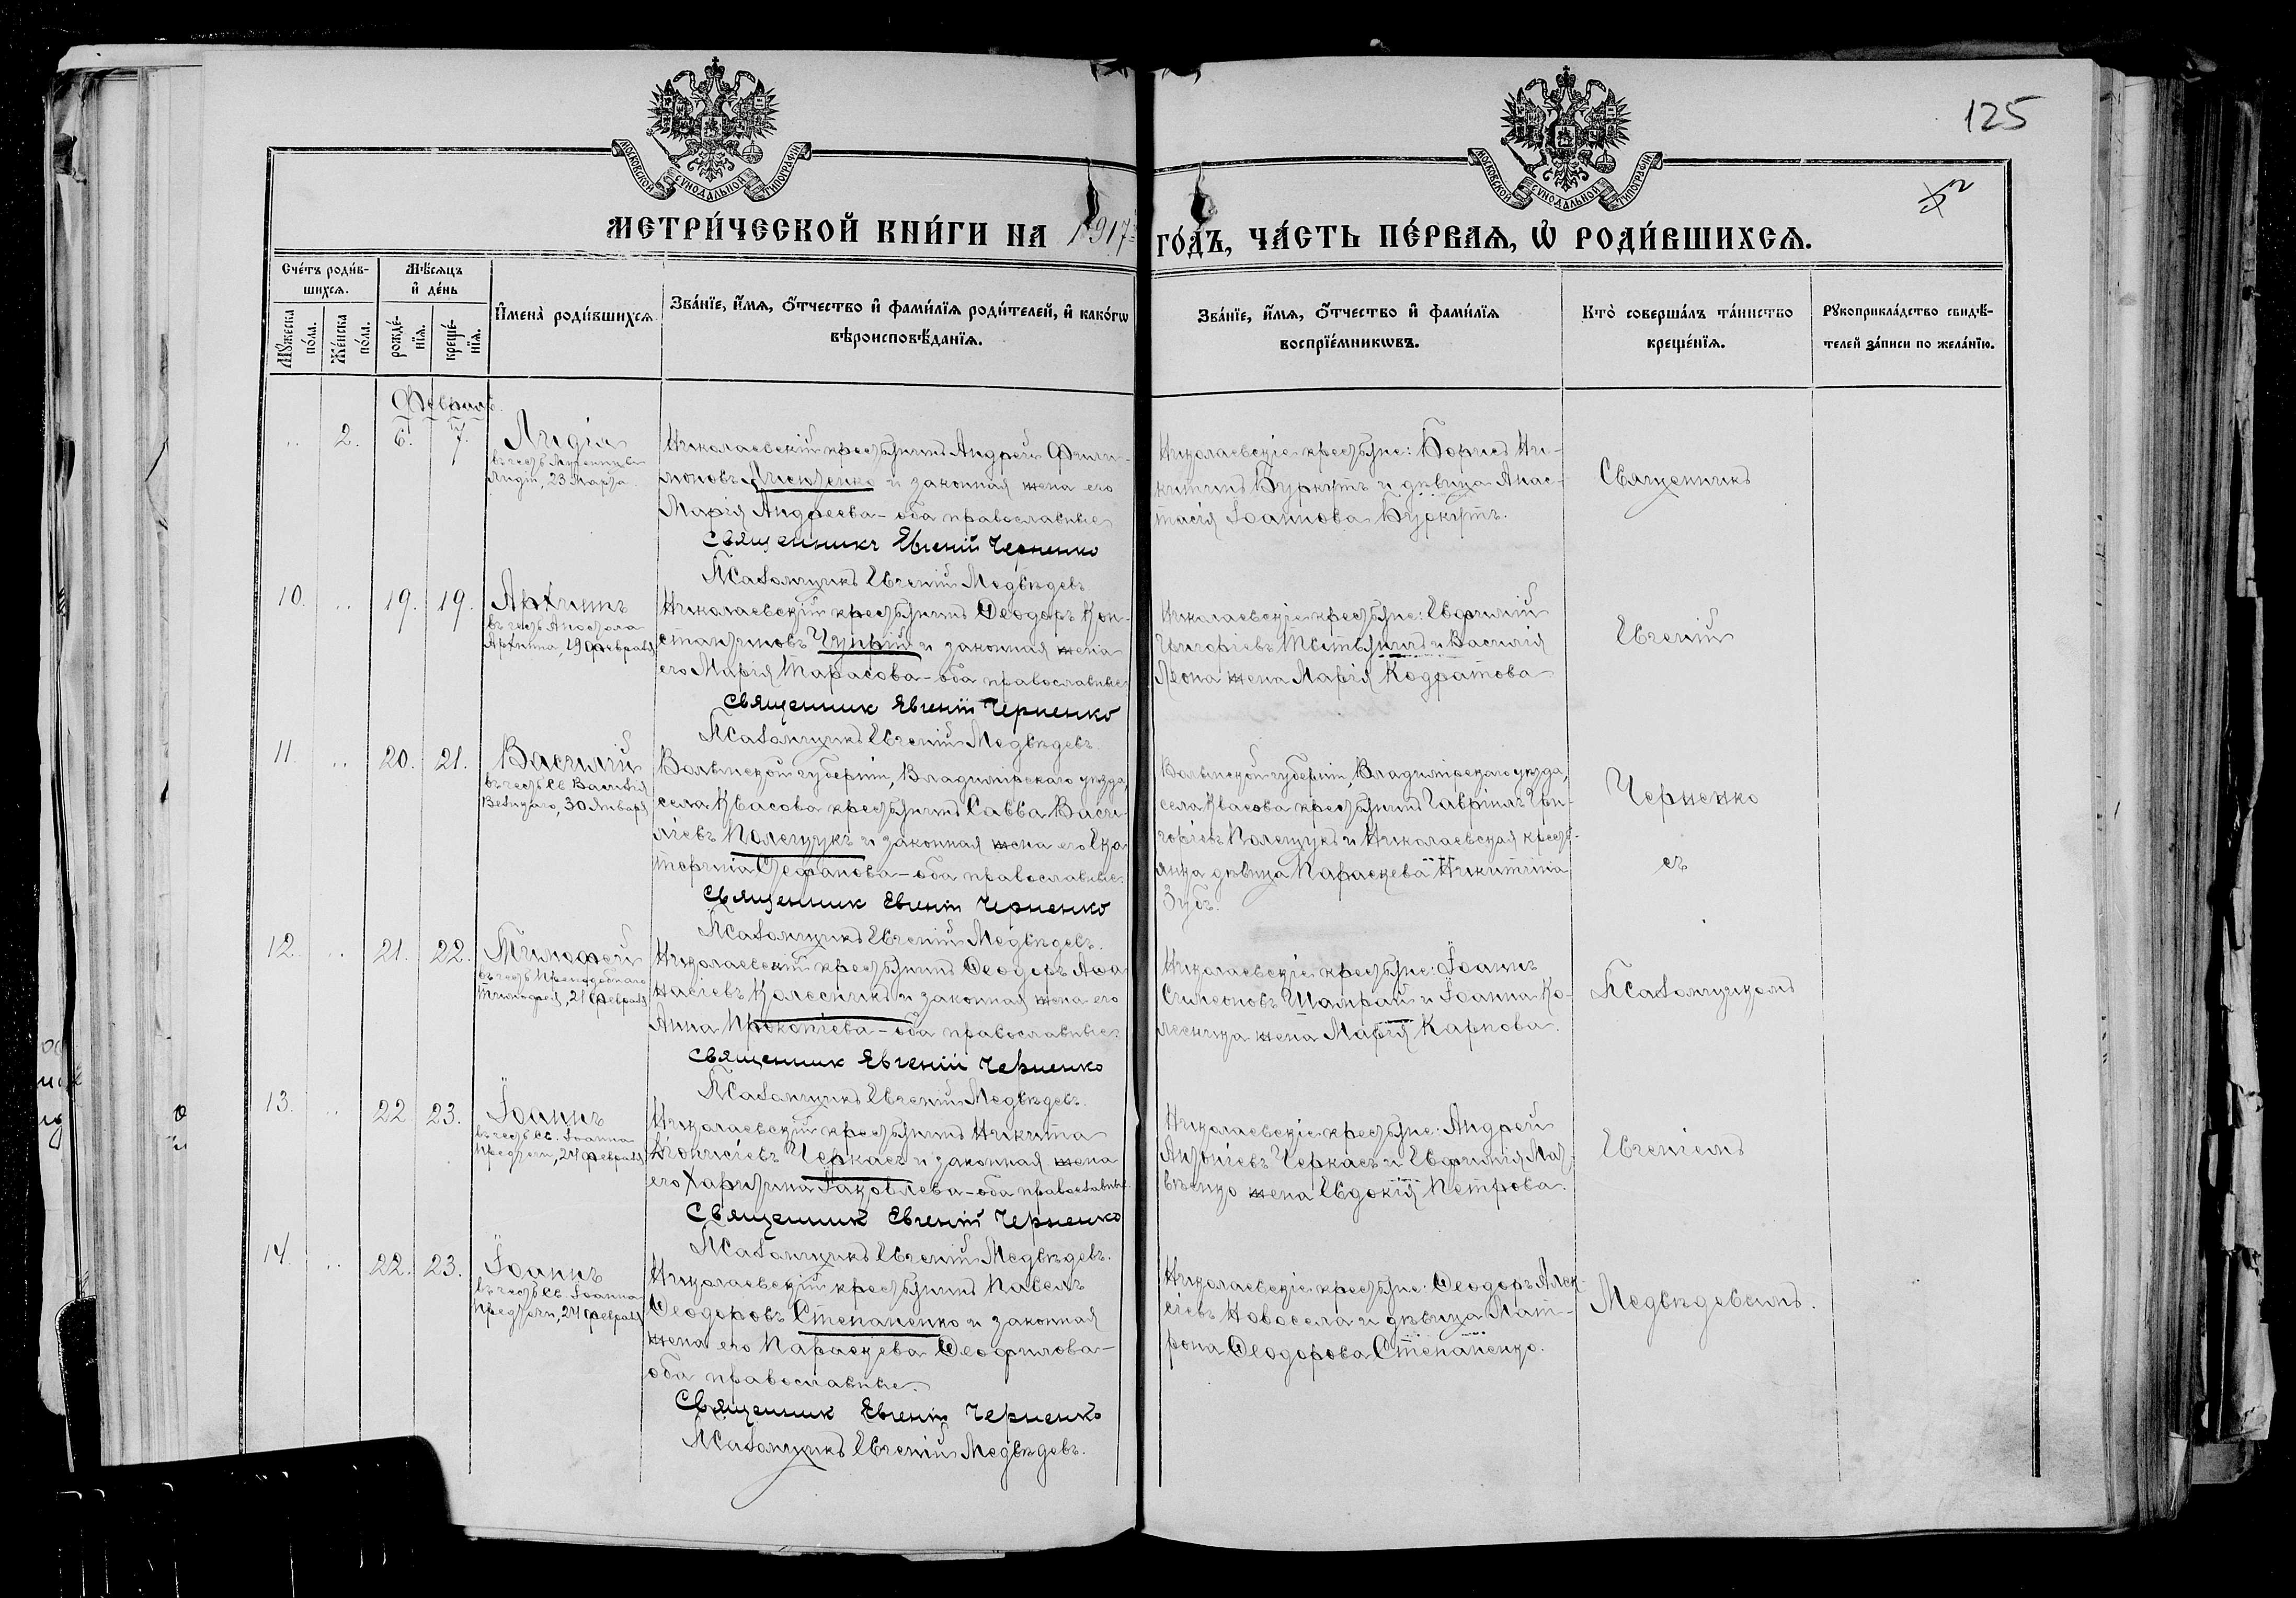 125
МОСКОВСКОЙ СѴНОДАЛЬНОЙ ТИПОГРАФІИ
МОСКОВСКОЙ СѴНОДАЛЬНОЙ ТИПОГРАФІИ
МЕТРИ́ЧЕСКОЙ КНИ́ГИ НА 1917 ГО́ДЪ, ЧА́СТЬ ПЕ́РВАЯ, Ѡ РОДИ́ВШИХСЯ.
Сче́тъ роди́в-
шихся.
Мѣ́сяцъ
и҆ де́нь
Мꙋ́жеска по́ла.
Же́нска по́ла.
рожде́-
нїя.
креще́-
нїя.
И҆мена̀ роди́вшихся
Зва́нїе, и҆́мя, ѻ҆́тчество и҆ фами́лїя роди́телей, и҆ како́гѡ
вѣроисповѣ́данїя.
Зва́нїе, и҆́мя, ѻ҆́тчество и҆ фами́лїя
воспрїе́мникѡвъ.
Кто̀ соверша́лъ та́инство
креще́нїя.
Рꙋкоприкла́дство свидѣ́-
телей за́писи по жела́нїю.
Февраль.
2. 6. 7. Лидія
въ честь Мученицы
Лидіи, 23 Марта.
Николаевскій крестьянинъ Андрей Фили-
моновъ Лисиченко и законная жена его
Марія Андреева – оба православные
Священникъ Евгеній Черненко
Псаломщикъ Евгеній Медвѣдевъ.
Николаевскіе крестьяне: Борисъ Ни-
китинъ Буркутъ и дѣвица Анас-
тасія Іоаннова Буркутъ.
Священникъ
10. 19. 19. Архипъ
въ честь Апостола
Архипа, 19 февраля
Николаевскій крестьянинъ Ѳеодоръ Кон-
стантиновъ Чупрій и законная жена
его Марія Тарасова – оба православные
Священник Евгеній Черненко
Псаломщикъ Евгеній Медвѣдевъ.
Николаевскіе крестьяне: Евфимій
Григоріевъ и Василія
жена Марія Кодратова
Евгеній
11. 20. 21. Василій
въ честь Св. Василія
Великаго, 30 Января
Волынской губерніи, Владимірскаго уѣзда,
села Квасова крестьянинъ Савва Васи-
ліевъ Полещукъ и законная жена его Ека-
терина Стефанова – оба православные.
Священник Евгеній Черненко
Псаломщикъ Евгеній Медвѣдевъ.
Волынской губерніи, Владимірскаго уѣзда,
села Квасова крестьянинъ Гавріилъ Гри-
горіевъ Полещукъ и Николаевская кресть-
янка дѣвица Параскева Никитина
Зубъ.
Черненко
съ
12. 21. 22. Тимофей
въ честь Преподобнаго
Тимофея, 21 февраля
Николаевскій крестьянинъ Ѳеодоръ Аѳа-
насіевъ Колесникъ и законная жена его
Анна Прокопіева – оба православные.
Священник Евгеній Черненко
Псаломщикъ Евгеній Медвѣдевъ.
Николаевскіе крестьяне: Іоаннъ
Симеоновъ Шамрай и Іоанна Ко-
лесника жена Марія Карпова.
Псаломщикомъ
13. 22 23. Іоаннъ
въ честь Св. Іоанна
Предтечи, 24 февраля
Николаевскій крестьянинъ Никита
Діонисіевъ Черкасъ и законная жена
его Харитина Іаковлева – оба православные.
Священник Евгеній Черненко
Псаломщикъ Евгеній Медвѣдевъ.
Николаевскіе крестьяне: Андрей
Антоніевъ Черкасъ и Евфимія Мат-
вѣенко жена Евдокія Петрова.
Евгеніемъ
14. 22. 23. Іоаннъ
въ честь Св. Іоанна
Предтечи, 24 февраля
Николаевскій крестьянинъ Павелъ
Ѳеодоровъ Степаненко и законная
жена его Параскева Ѳеофилова –
оба православные.
Священник Евгеній Черненко
Псаломщикъ Евгеній Медвѣдевъ.
Николаевскіе крестьяне: Ѳеодоръ Алек-
сіевъ Новосела и дѣвица Мат-
рона Ѳеодорова Степаненко.
Медвѣдевымъ.